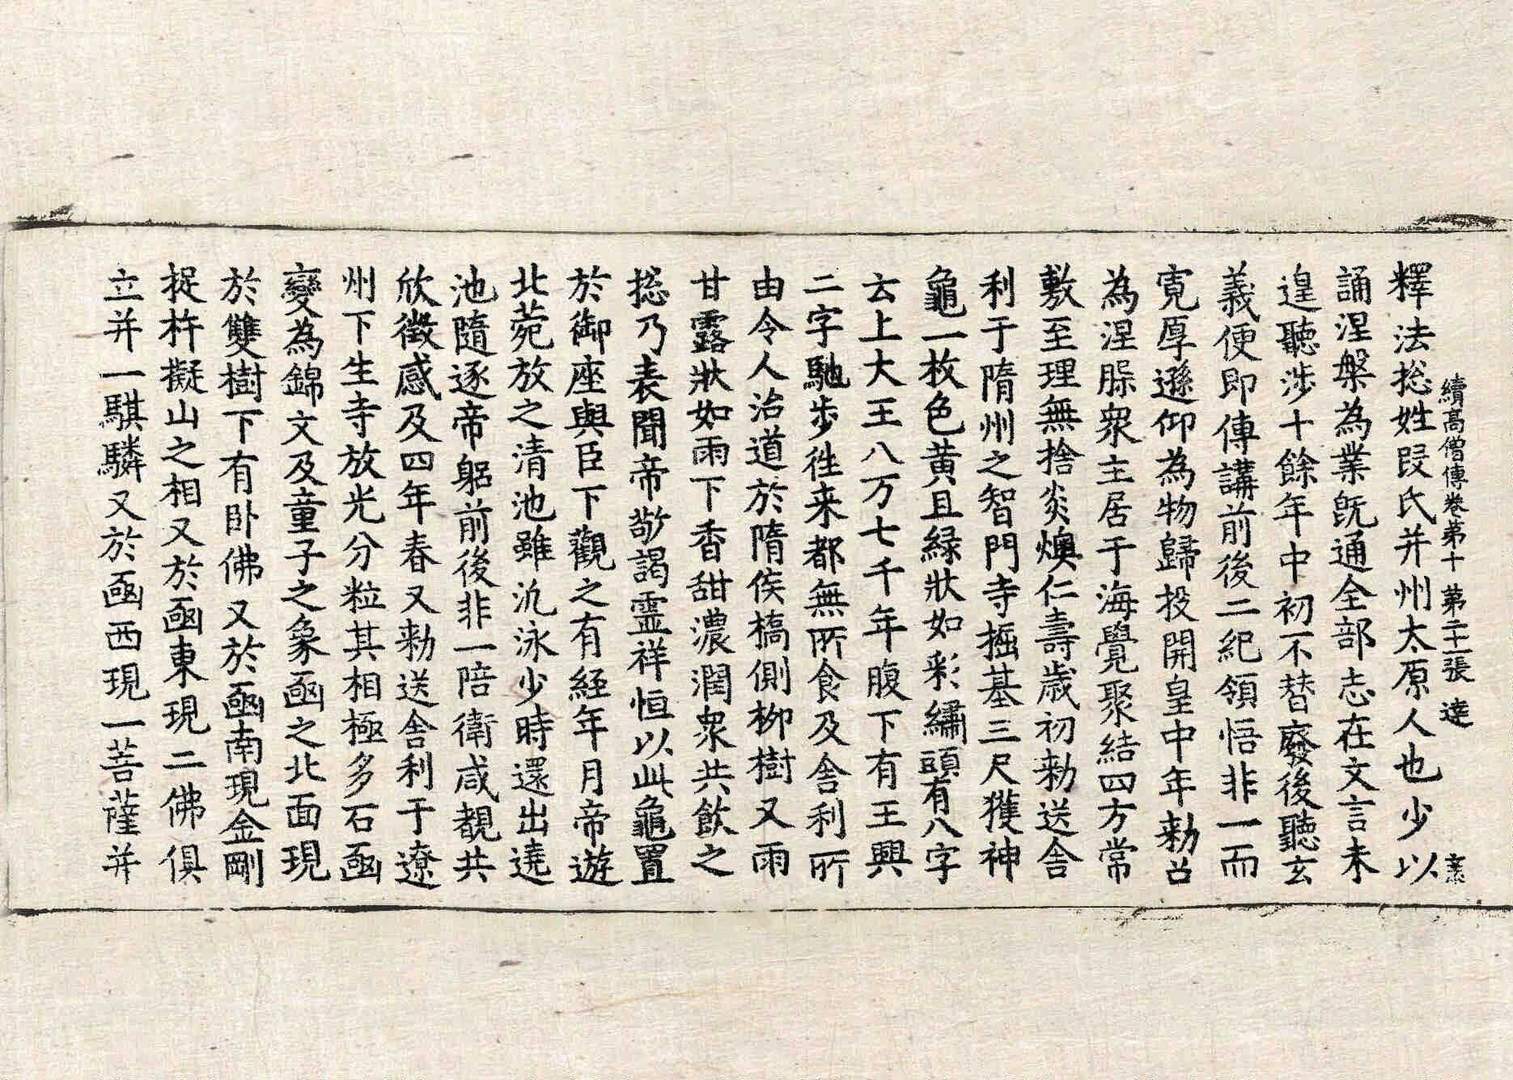 續高僧傳卷第十 第二十一張 達
釋法捴姓叚氏并州太原人也少以
誦涅槃為業既通全部志在文言未
遑聽涉十餘年中初不替廢後聽玄
義便即傳講前後二紀領悟非一而
寛厚遜仰為物歸投開皇中年勑召
為涅槃衆主居于海覺聚結四方常
敷至理無捨炎燠仁壽歲初勑送舎
利于隋州之智門寺掘基三尺獲神
龜一枚色黄且緑狀如彩繡頭有八字
云上大王八万七千年腹下有王興
二字馳歩往来都無所食及舎利所
由令人治道於隋侯橋側栁樹又雨
甘露狀如雨下香甜濃潤衆共飲之
捴乃表聞帝敬謁霊祥恒以此龜置
於御座與臣下觀之有経年月帝遊
北菀放之清池雖氿泳少時還出遶
池隨逐帝躬前後非一陪衛咸覩共
欣徴感及四年春又勑送舎利于遼
州下生寺放光分粒其相極多石凾
變為錦文及童子之象凾之北面現
於雙樹下有卧佛又於凾南現金剛
捉杵擬山之相又於凾東現二佛俱
立并一騏驎又於凾西現一菩薩并